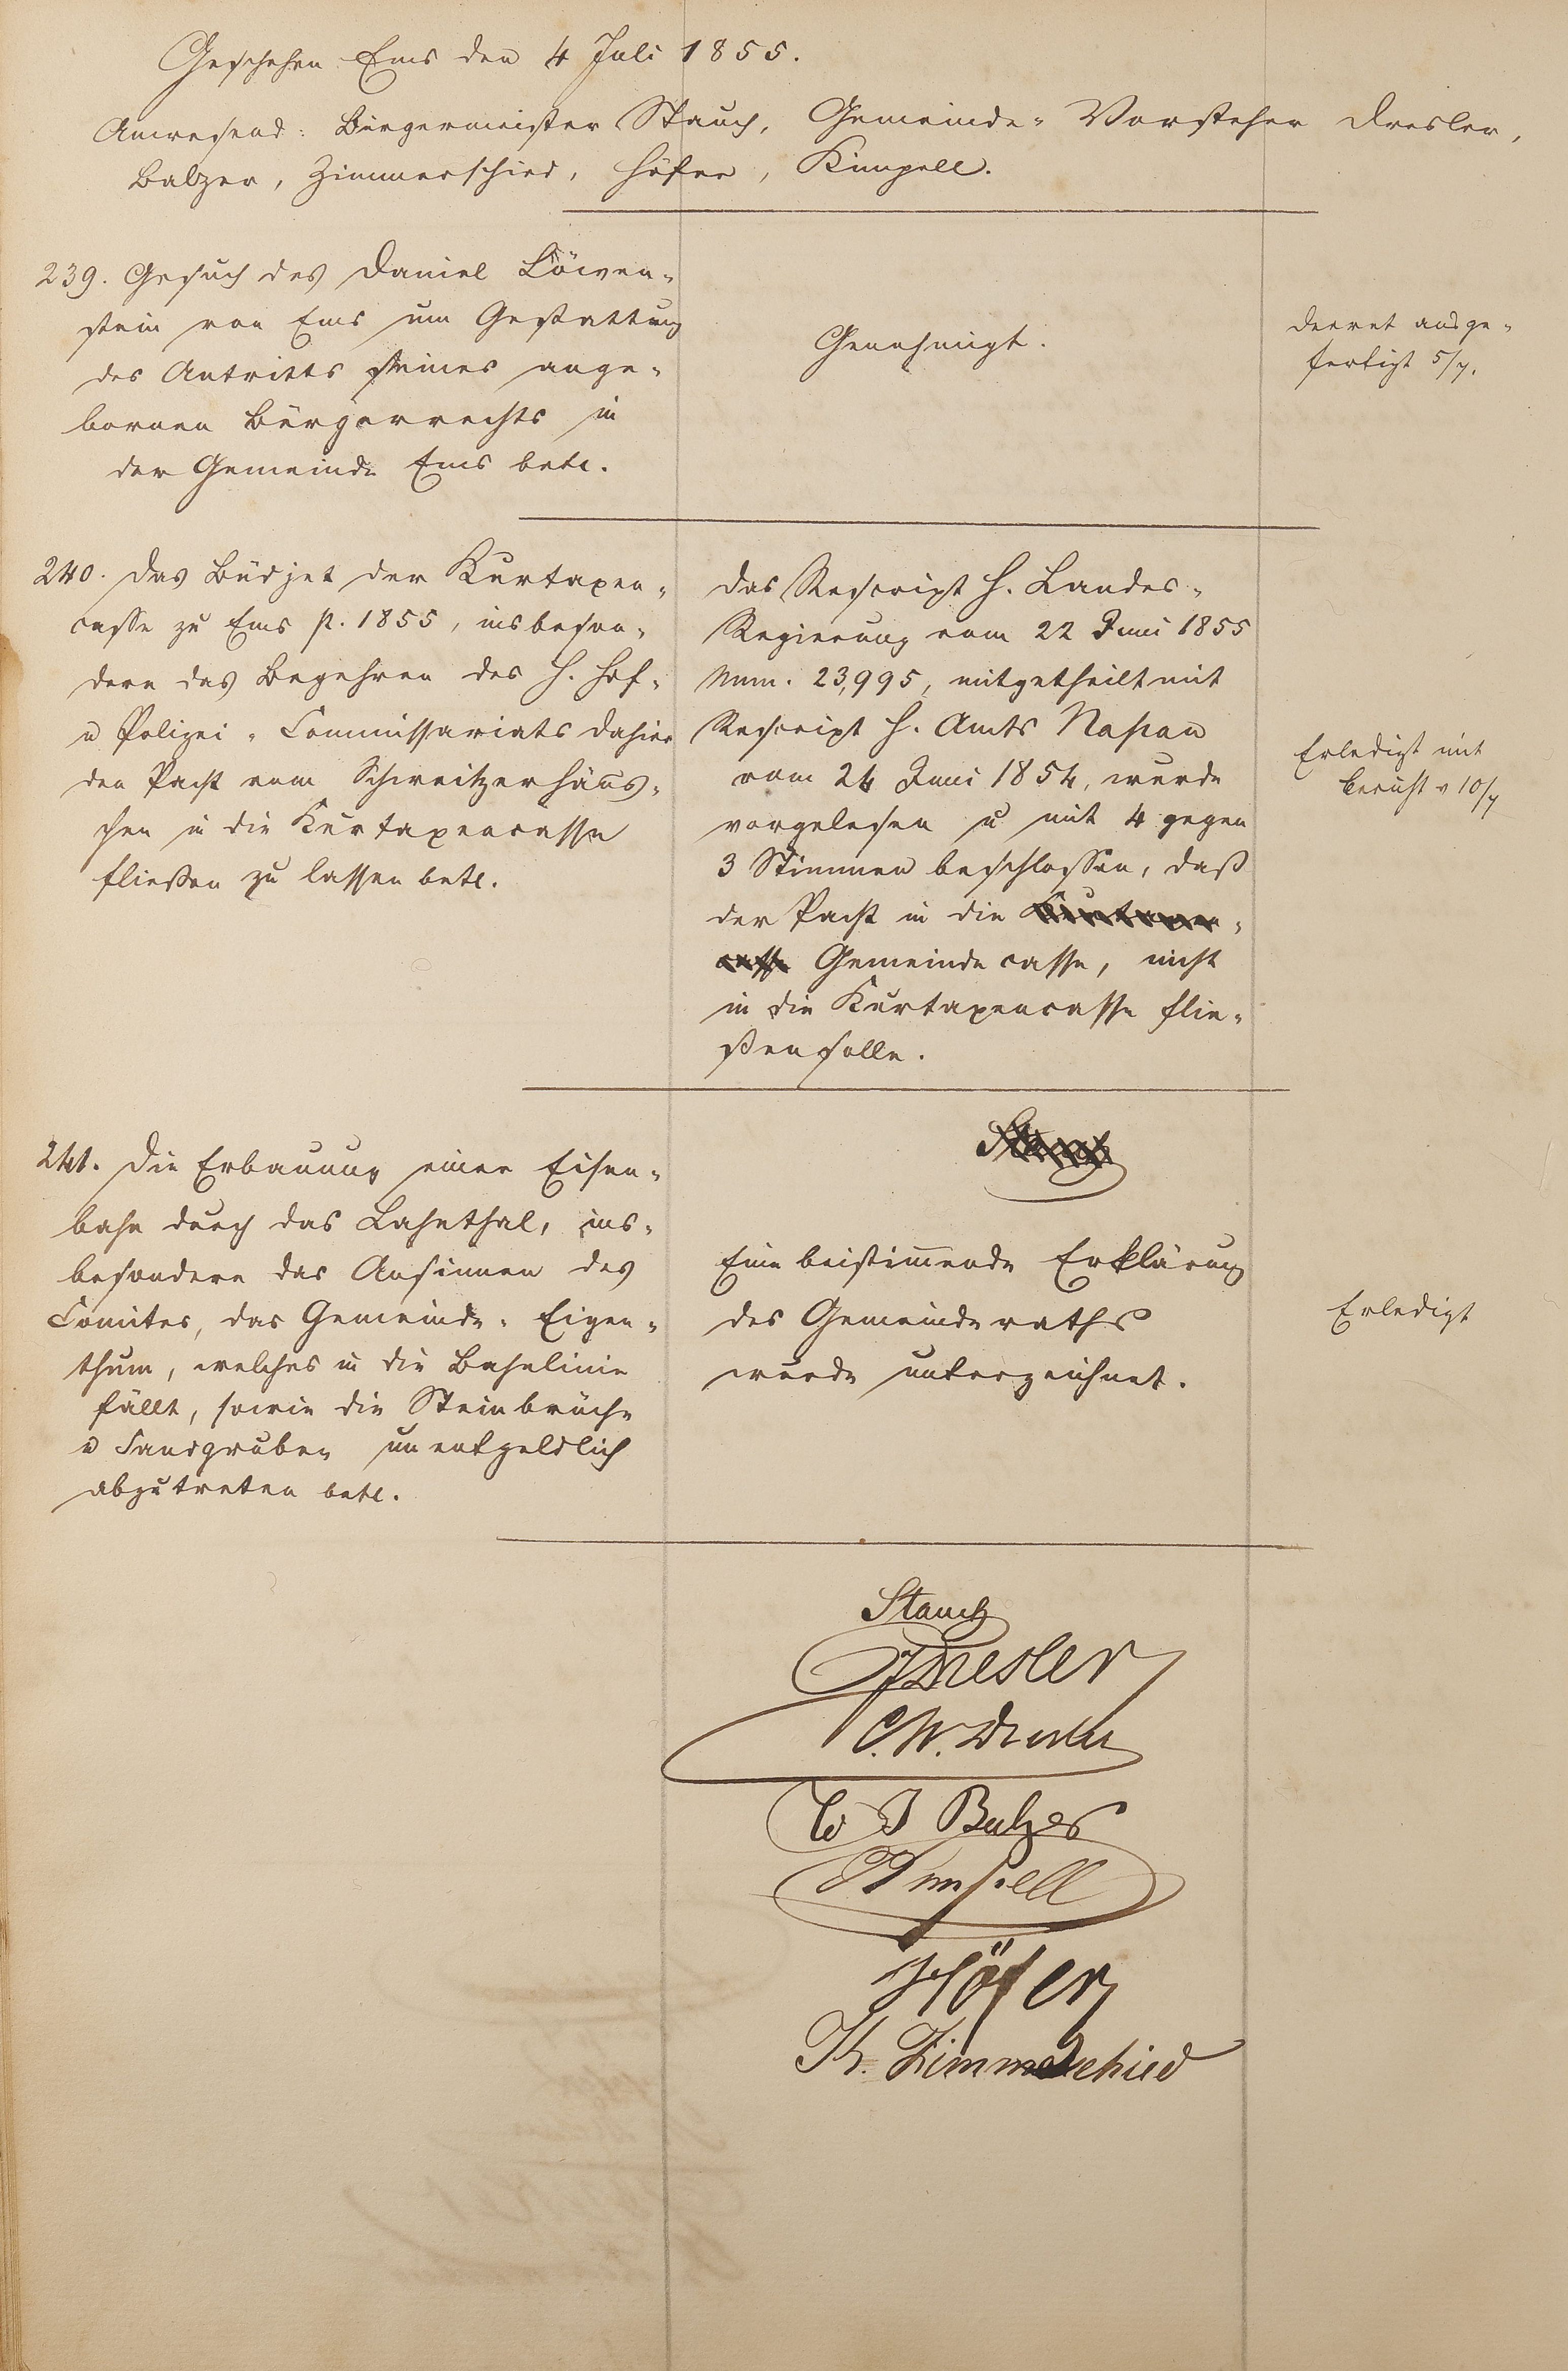 Geschehen Ems den 4 Juli 1855.
Anwesend: Bürgermeister Stauch, Gemeinde-Vorsteher Dresler,
Balzer, Zimmerschied, Höfer, Kimpell.
239. Gesuch des Daniel Löwen-
stein von Ems um Gestattung
des Antritts seines ange-
bornen Bürgerrechts in
der Gemeinde Ems betr.
Genehmigt.
Decret ausge-
fertigt 5/7.
240. Das Büdjet der Kurtaxen-
casse zu Ems p. 1855, insbeson-
dere das Begehren des H. Hof-
u Polizei-Commissariats dahier
den Pacht vom Schweitzerhäus-
chen in die Kurtaxencasse
fließen zu lassen betr.
Das Rescript H. Landes-
Regierung vom 22 Juni 1855
Num. 23,995, mitgetheilt mit
Rescript H. Amts Nassau
vom 24 Juni 1854, wurde
vorgelesen u mit 4 gegen
3 Stimmen beschlossen, daß
der Pacht in die Kurtaxen-
casse Gemeindecasse, nicht
in die Kurtaxencasse flie-
ßen solle.
Erledigt mit
Bericht v 10/7
Stauch
241. Die Erbauung einer Eisen-
bahn durch das Lahnthal, ins-
besondere das Ansinnen des
Comites, das Gemeinde-Eigen-
thum, welches in die Bahnlinie
fällt, sowie die Steinbrüche
u Sandgruben unentgeldlich
abzutreten betr.
Eine beistimmende Erklärung
des Gemeinderaths
wurde unterzeichnet.
Erledigt
Stauch
Dresler
C. W. Dresler
W J Balzer
Kimpell
Höfer
Th. Zimmerschied